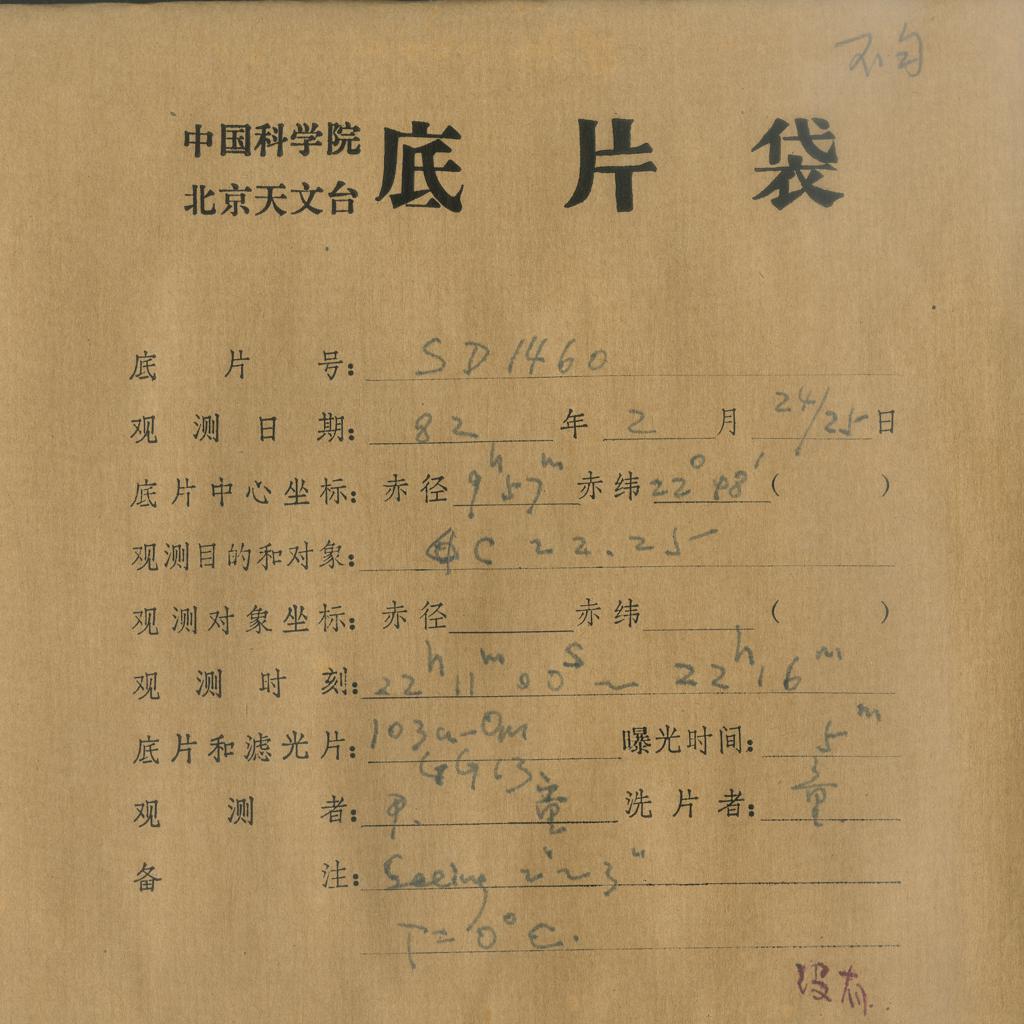 不匀
中国科学院
北京天文台
底片袋
底片号: SD1460
观测日期: 82年2月24/25日
底片中心坐标: 赤径9h57m赤纬22°48′( )
观测目的和对象: C 22.25
观测对象坐标: 赤径 赤纬 ( )
观测时刻: 22h11m00s~22h16m
底片和滤光片: 103a-O 曝光时间: 5m
GG13
观测者: 童 洗片者: 童
备注: Seeing 2"~3"
T=0°C.
没有